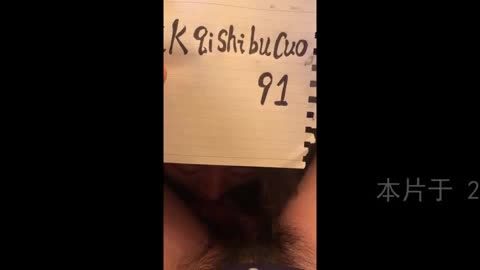 K qishibucuo
91
本片于 2